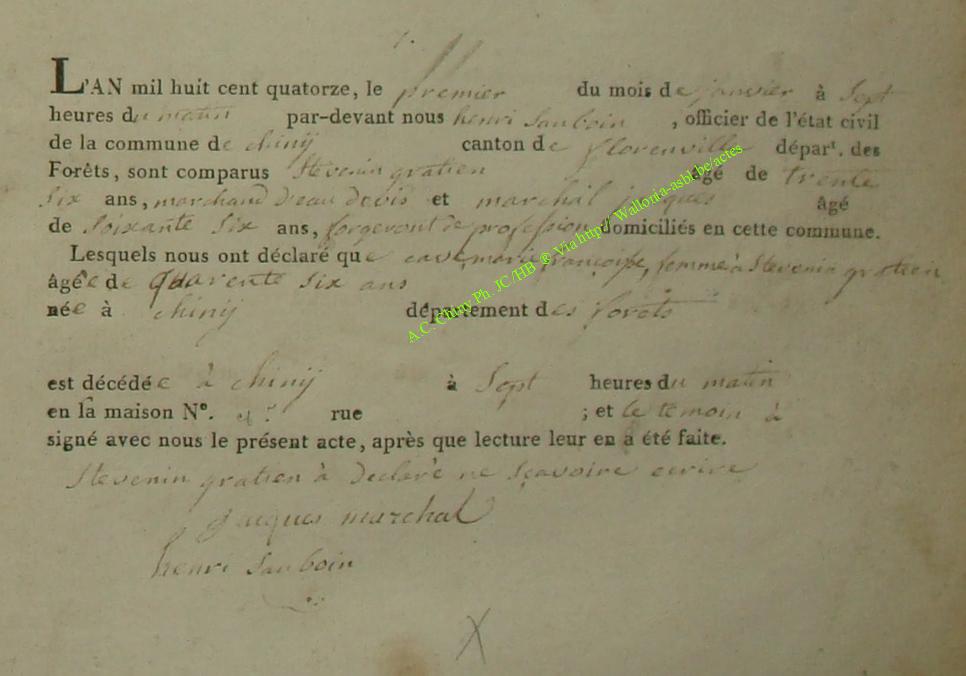 1.
L'AN mil huit cent quatorze, le premier du mois de janvier à Sept
heures du matin par-devant nous henri Sauboin , officier de l'état civil
de la commune de chinÿ canton de florenville dépar.t des
Forêts, sont comparus Stevenin gratien âgé de trente
six ans, marchand d'eau de vis et marchal jacques âgé
de Soixante Six ans, forgeront de profession domiciliés en cette commune.
Lesquels nous ont déclaré que marie françoisse, femme à Stevenin gratien
âgée de quarente Six ans
née à chinÿ département des forets
est décédée à chinÿ à Sept heures du matin
en la maison N°. rue ; et le temoin à
signé avec nous le présent acte, après que lecture leur en a été faite.
Stevenin gratien à declaré ne sçavoire ecrire
jacques marchal
henri Sauboin
A.C. Chiny Ph. JC /HB @ Via http// Wallonia-asbl.be/actes